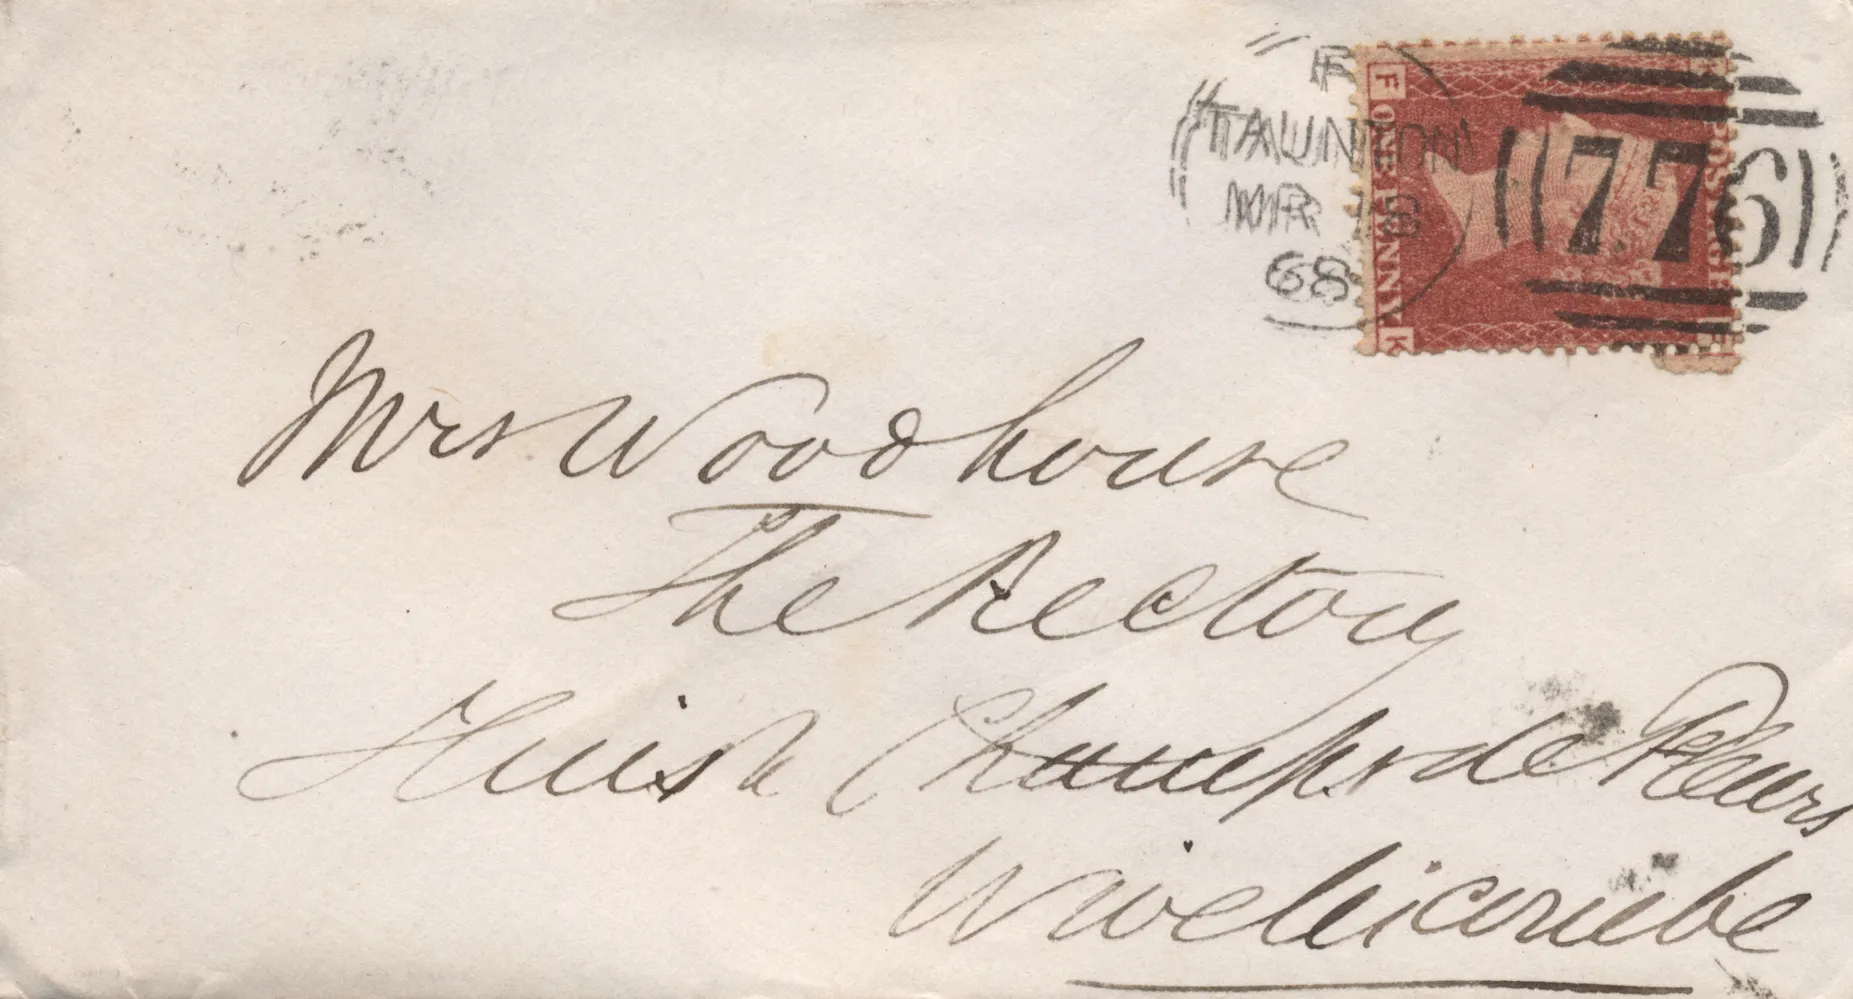 F
TAUNTON
MR 18
68
776
F
ONE PENNY
K
POSTAGE
Mrs Woodhouse
The Rectory
Huish Champs de Fleurs
Wiveliscombe